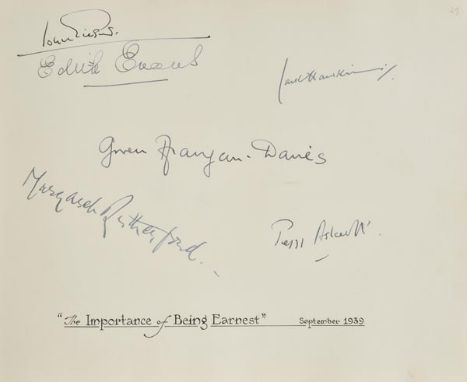 John Gielgud.
Edith Evans
Jack Hawkins
Gwen Ffrangcon-Davies
Margaret Rutherford.
Peggy Ashcroft.
"The Importance of Being Earnest" September 1939